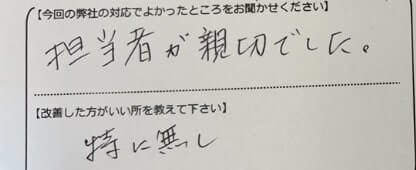 【今回の弊社の対応でよかったところをお聞かせください】
担当者が親切でした。
【改善した方がいい所を教えて下さい】
特に無し